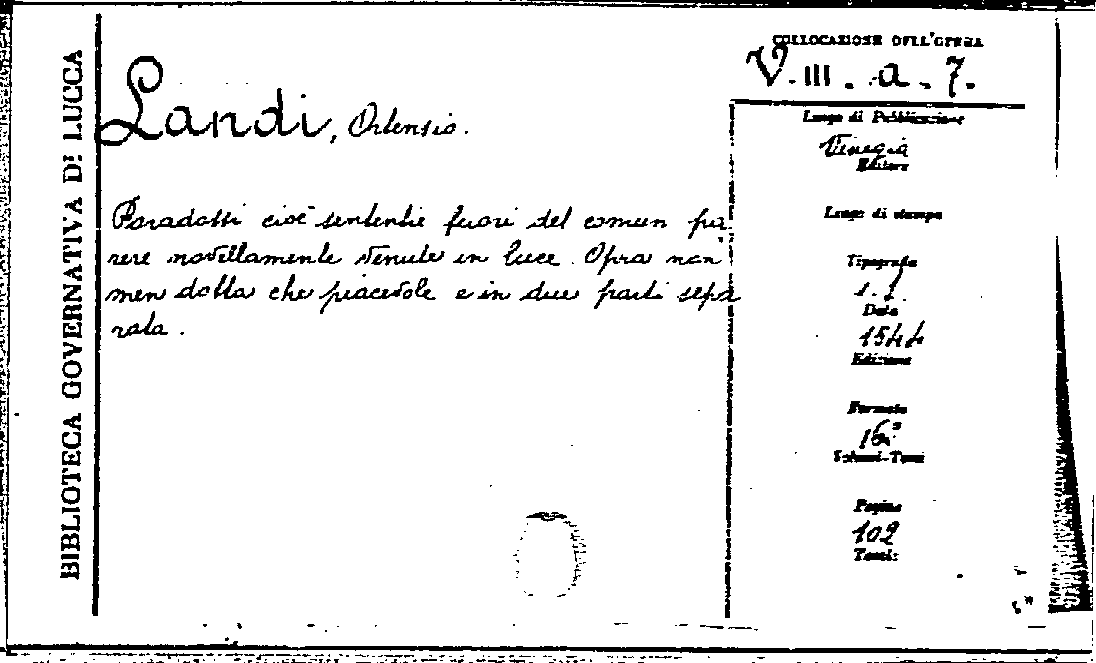 BIBLIOTECA GOVERNATIVA DI LUCCA
Landi, Ortensio.
Paradossi cioè sententie fuori del comun pa
rere novellamente venute in luce. Opra non
men dotta che piacevole e in due parti sepa
rata.
COLLOCAZIONE DELL'OPERA
V. III. a. 7.
Luogo di Pubblicazione
Venegia
Editore
Luogo di stampa
Tipografia
s. t.
Data
1544
Edizione
Formato
16°
Volumi-Tomi
Pagine
102